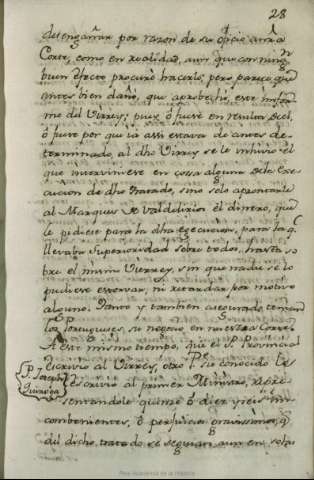 28
desengañar por razon de su oficio a nra
Corte, como en realidad, aun que con ningn
buen efecto procurò hacerlo; pero parece que
antes bien dañò, que aprobechò, este infor
me del Virrey; pues ò fuè en resulta del,
ò fuese por que ia assi estava de antes de-
terminado, al dho Virrey se le inhiviò el
que interviniese en cossa alguna de la Exe
cucion de dho Tratado, sino solo aprontarle
al Marques de Valdelirios el dinero, que
le pidiese para la dha egecucion, para la ql
llevaba superioridad sobre todos, hasta so
bre el mismo Virrey, sin que nadie se lo
pudiese estorvar, ni retardar por motivo
alguno. Tanto y tambien asegurado tenian
los Portugueses su negocio en nuestra Corte.
A este mismo tiempo, que el P. Provincial
escrivio al Virrey, otro Pe. su conocido les
escrivio al primer Ministro, repre
sentandole quince ò diez y seis in
combenientes, ò perjuicios gravissimos, q
del dicho tratado se seguian aun en solo
P. Joseph
Quiroga
Real Academia de la Historia